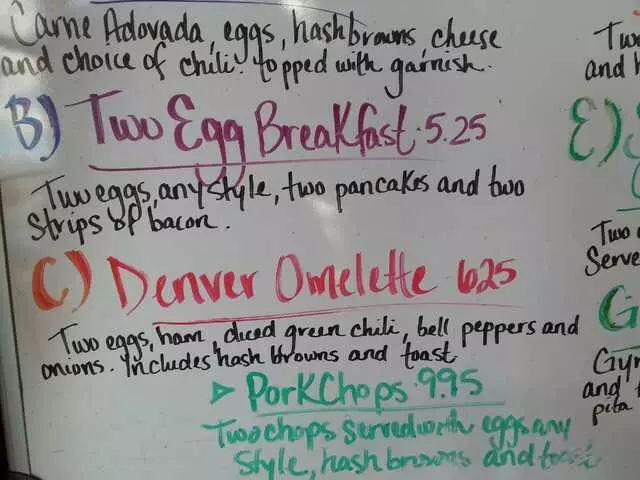 Carne Adovada, eggs, hashbrowns, cheese
and choice of chili. topped with garnish.
B) Two Egg Breakfast. 5.25
Two eggs, any style, two pancakes and two
strips of bacon.
C) Denver Omelette 6.25
Two eggs, ham, diced green chili, bell peppers and
onions. includes hash browns and toast
PorkChops. 9.95
Two chops served with eggs any
style, hash browns and toast
Two
and
E)
Two
Serve
G
Gyr
and
pita